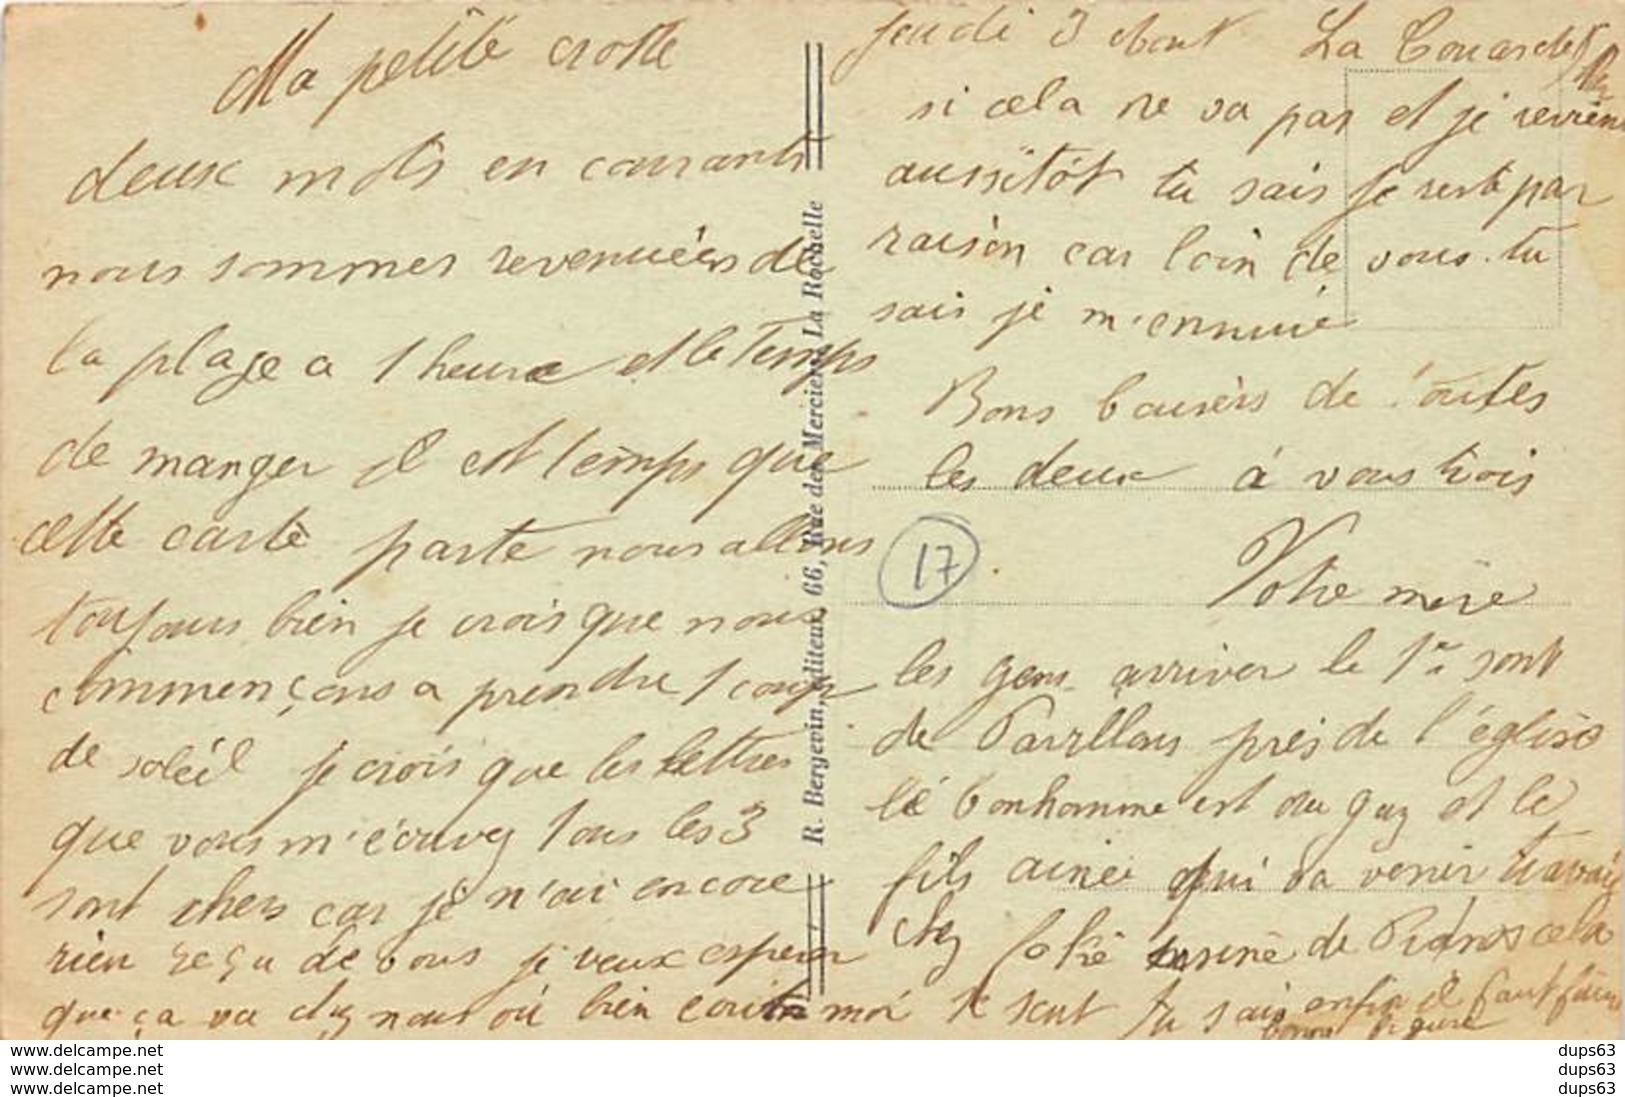 Ma petite crotte
deux mots en courants
nous sommes revenuées de
la plage a 1 heure et le Temps
de manger il est temps que
cette carte parte nous allons
toujours bien je crois que nous
commençons a prendre 1 coup
de soléil je crois que les lettres
que vous m'écrivez tous les 3
sont chers car je n'ai encore
rien reçu de vous je veux esperer
que ça va chez nous où bien écri moi
R. Bergevin, éditeur, 66, Rue des Merciers, La Rochelle
Jeudi 3 Aout La Couarde
si cela ne va pas et je reviens
aussitôt tu sais je reste par
raison car loin de vous tu
sais je m'ennuie
Bons baisers de toutes
les deux à vous trois
17
Votre mère
les gens arriver le 1er sont
de Pavillons près de l'église
le bonhomme est au gaz et le
fils ainée qui va venir travail
chez votre usine de Pianos cela
se sent tu sais enfin il faut faire
bonne figure
dups63
dups63
dups63
www.delcampe.net
www.delcampe.net
www.delcampe.net